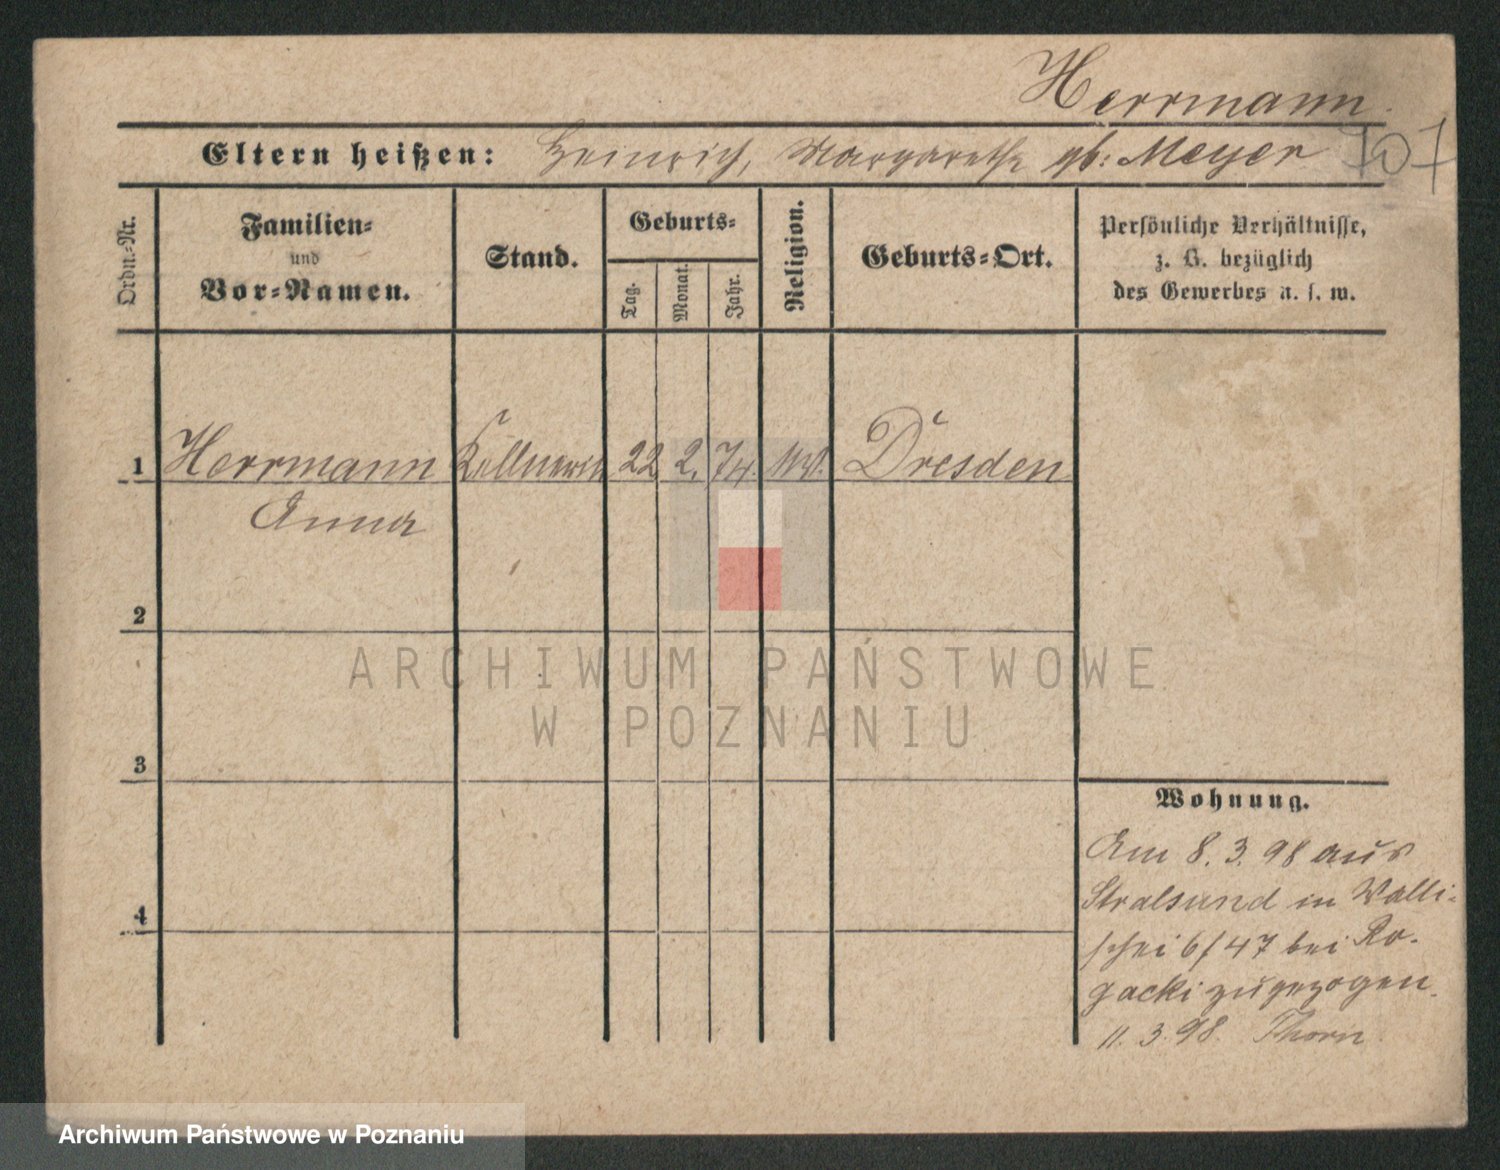 Herrmann.
707
Eltern heißen: Heinrich, Margarethe gb: Meyer
Ordn.-Nr.
Familien-
und
Vor-Namen.
Stand.
Geburts-
Tag.
Monat.
Jahr.
Religion.
Geburts-Ort.
Persönliche Verhältnisse,
z. B. bezüglich
des Gewerbes u. s. w.
1 Herrmann Kellnerin 22 2. 74. Dresden
Anna
2
ARCHIWUM PAŃSTWOWE
W POZNANIU
3
Wohnung.
Am 8. 3. 98 aus
Stralsund in Walli-
schei 6/47 bei Ro-
gacki zugezogen.
11. 3. 98. Thorn
4
Archiwum Państwowe w Poznaniu